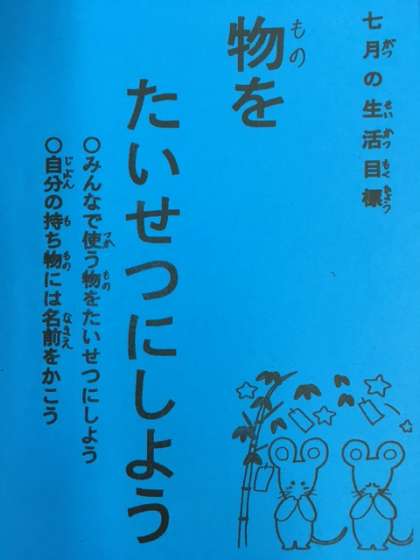 七月の生活目標
物を
たいせつにしよう
○みんなで使う物をたいせつにしよう
○自分の持ち物には名前をかこう